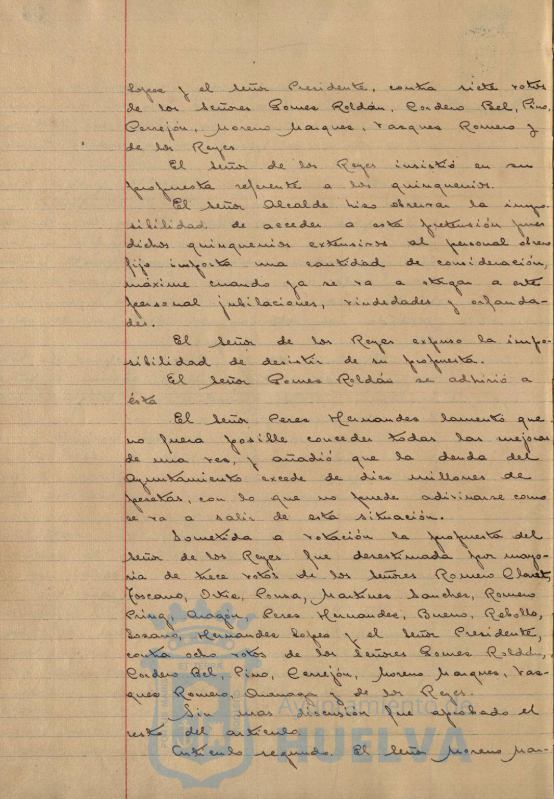 Lopez y el Señor Presidente, contra siete votos
de los Señores Gomez Roldán, Cordero Bel, Pino,
Cerrejón, Moreno Marquez, Vazquez Romero y
de los Reyes.
El Señor de los Reyes insistió en su
propuesta referente a los quinquenios.
El Señor Alcalde hizo observar la impo-
sibilidad de acceder a esta pretensión pues
dichos quinquenios extensivos al personal obrero
fijo importa una cantidad de consideración,
máxime cuando ya se va a otorgar a este
personal jubilaciones, viudedades y orfanda-
des.
El Señor de los Reyes expuso la impo-
sibilidad de desistir de su propuesta.
El Señor Gomez Roldán se adhirió a
ésta
El Señor Perez Hernandez lamentó que
no fuera posible conceder todas las mejoras
de una vez, y añadió que la deuda del
Ayuntamiento excede de diez millones de
pesetas, con lo que no puede adivinarse como
se va a salir de esta situación.
Sometida a votación la propuesta del
Señor de los Reyes fue desestimada por mayo-
ria de trece votos de los Señores Romero Claret,
Toscano, Ortiz, Ponsa, Martinez Sanchez, Romero
Aragón, Perez Hernandez, Bueno, Rebollo,
Lozano, Hernandez Lopez y el Señor Presidente,
contra ocho votos de los Señores Gomez Roldán,
Cordero Bel, Pino, Cerrejón, Moreno Marquez, Vaz-
quez Romero, y de los Reyes.
Sin mas discusión fue aprobado el
resto del artículo.
Artículo segundo. El Señor Moreno Mar-
Ayuntamiento de
HUELVA